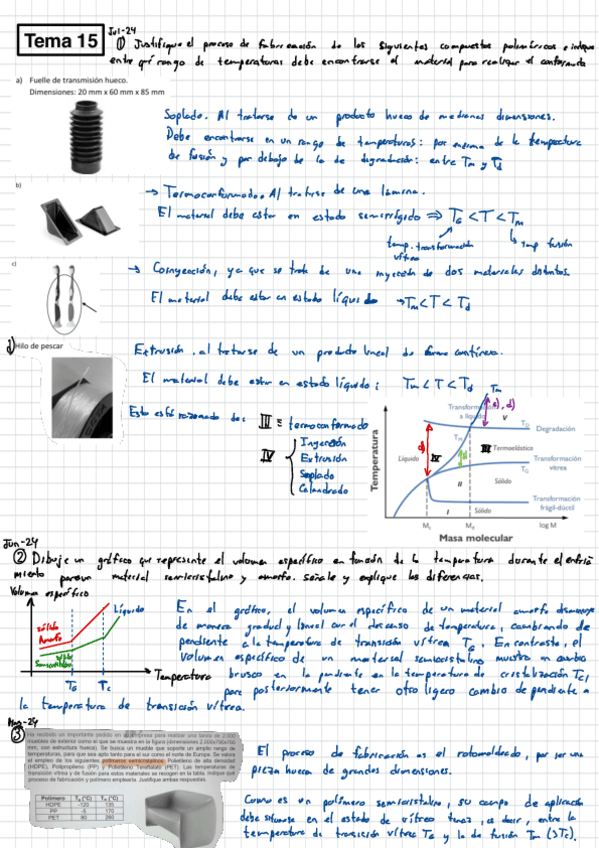 Tema 15
Jul-24
① Justifique el proceso de fabricación de los siguientes compuestos poliméricos e indique
entre qué rango de temperaturas debe encontrarse el material para realizar el conformado
a) Fuelle de transmisión hueco.
Dimensiones: 20 mm x 60 mm x 85 mm
Soplado. Al tratarse de un producto hueco de medianas dimensiones.
Debe encontrarse en un rango de temperaturas: por encima de la temperatura
de fusión y por debajo de la de degradación: entre Tm y Td
b)
→ Termoconformado. Al tratarse de una lámina.
El material debe estar en estado semirrígido ⇒ TG < T < Tm
temp. transformación vítrea
temp fusión
c)
→ Coinyección, ya que se trata de una inyección de dos materiales distintos.
El material debe estar en estado líquido → Tm < T < Td
d) Hilo de pescar
Extrusión. al tratarse de un producto lineal de forma continua.
El material debe estar en estado líquido: Tm < T < Td
Esto está razonado de:
III = termoconformado
IV
Inyección
Extrusión
Soplado
Calandrado
Temperatura
Transformación a líquido
Tm
c), d)
V
TD
Degradación
a)
Líquido
IV
TM
b)
III
Termoelástico
TG
Transformación vítrea
II
Sólido
Transformación frágil-dúctil
I
Sólido
log M
Masa molecular
Jun-24
② Dibuje un gráfico que represente el volumen específico en función de la temperatura durante el enfria
miento para un material semicristalino y amorfo. señale y explique las diferencias.
Volumen específico
sólido
Amorfo
Líquido
Semicristalino
TG
Tc
Temperatura
En el gráfico, el volumen específico de un material amorfo disminuye
de manera gradual y lineal con el descenso de temperatura, cambiando de
pendiente a la temperatura de transición vítrea TG. En contraste, el
volumen específico de un material semicristalino muestra un cambio
brusco en la pendiente en la temperatura de cristalización Tc,
para posteriormente tener otro ligero cambio de pendiente a
la temperatura de transición vítrea.
May-24
③
Ha recibido un importante pedido en su empresa para realizar una tanda de 2.000
muebles de exterior como el que se muestra en la figura
con estructura hueca). Se busca un mueble que soporte un amplio rango de
temperaturas, para que sea apto tanto para el sur como el norte de Europa. Se valora
el empleo de los siguientes polímeros semicristalinos: Polietileno de alta densidad
(HDPE), Polipropileno (PP) y Polietileno Tereftalato (PET). Las temperaturas de
transición vítrea y de fusión para estos materiales se recogen en la tabla. Indique qué
proceso de fabricación y polímero emplearía. Justifique ambas respuestas.
Polímero TG (°C) Tm (°C)
HDPE -120 135
PP -5 170
PET 80 260
El proceso de fabricación es el rotomoldeado, por ser una
pieza hueca de grandes dimensiones.
Como es un polímero semicristalino, su campo de aplicación
debe situarse en el estado de vítreo tenaz, es decir, entre la
temperatura de transición vítrea TG y la de fusión Tm